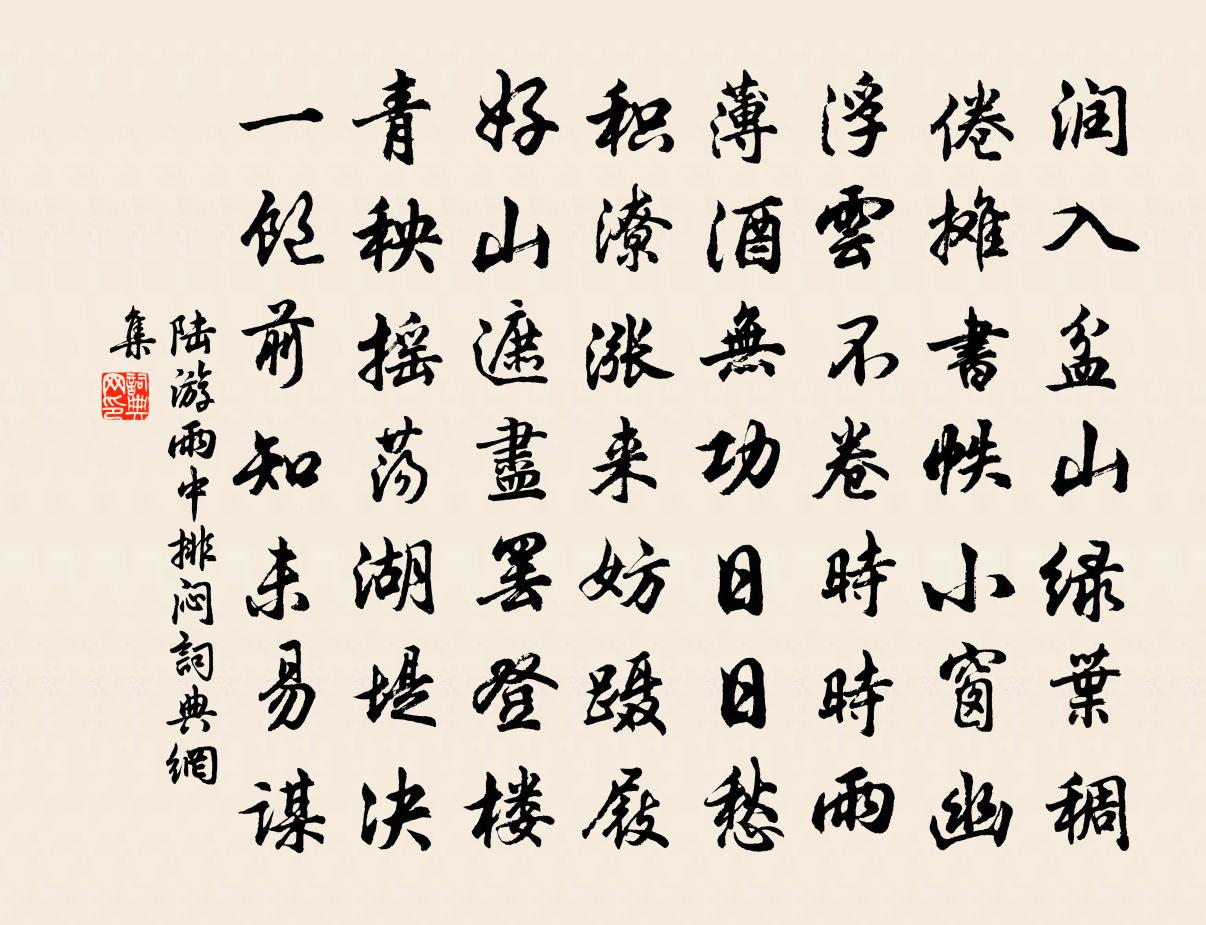 润入盆山绿葉稠
倦摊書帙小窗幽
浮雲不卷時時雨
薄酒無功日日愁
积潦漲来妨蹑屐
好山遮盡罢登楼
青秧摇荡湖堤决
一饱前知未易謀
陆游雨中排闷詞典網
集
詞典
网印